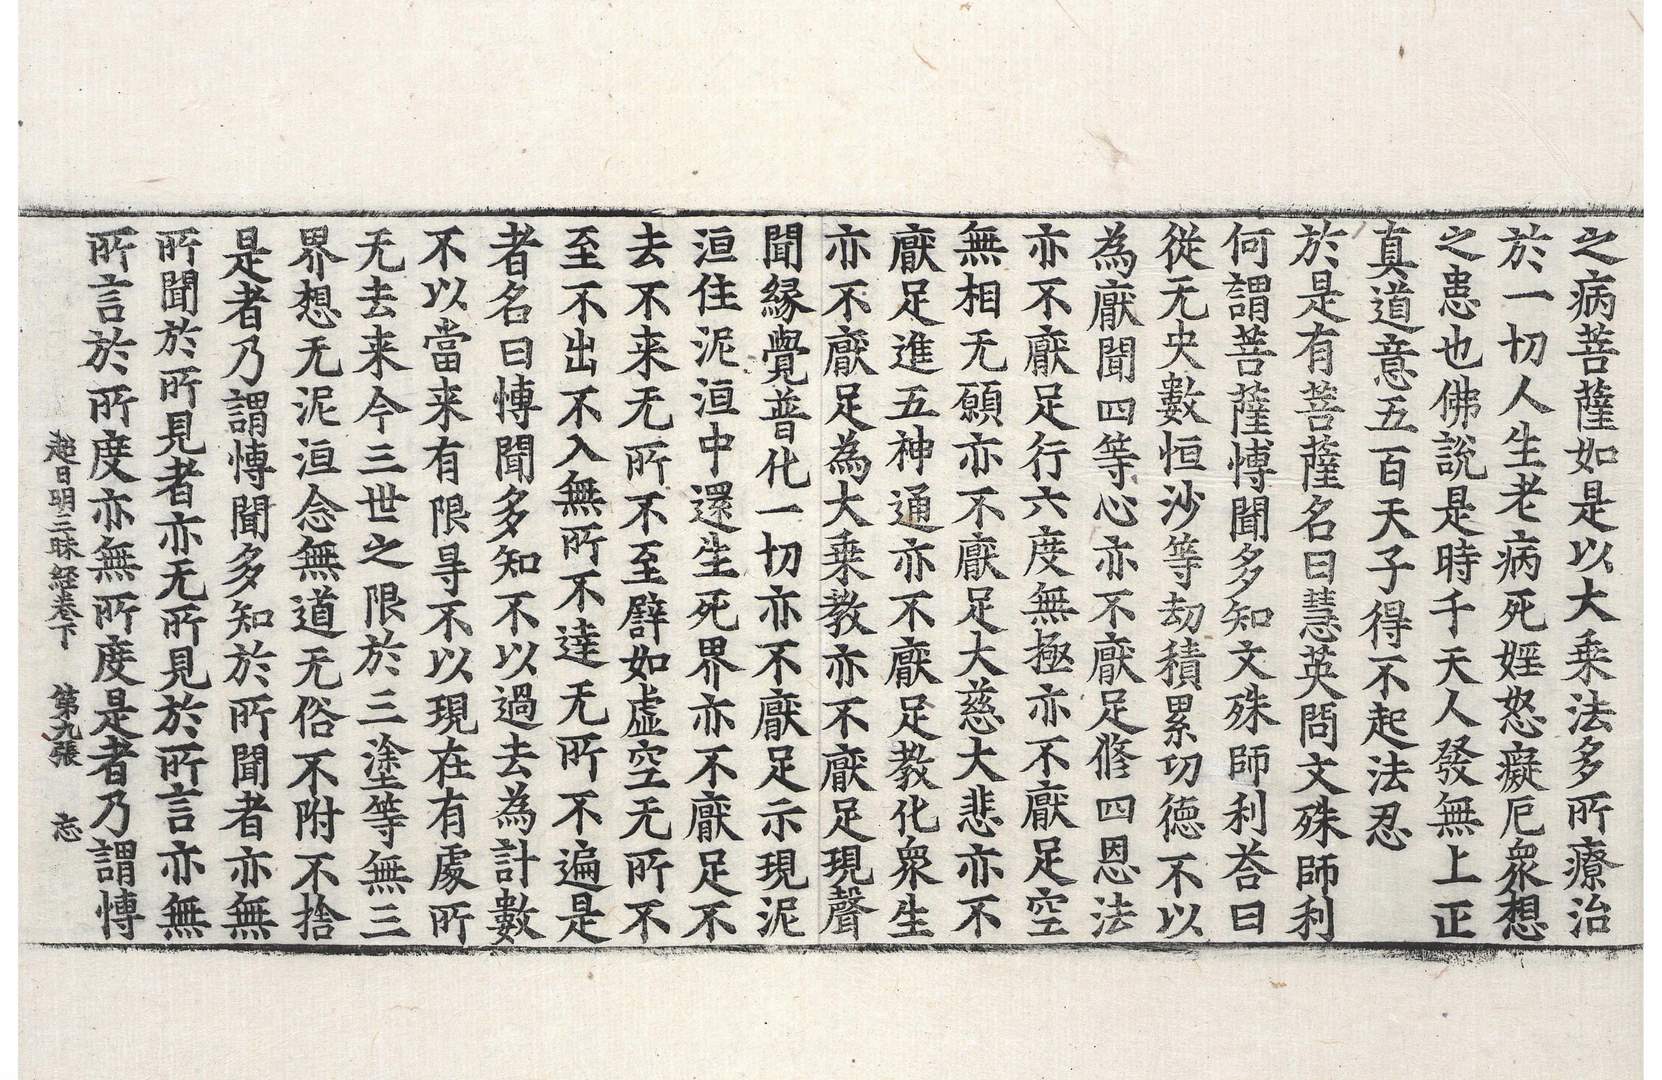 之病菩薩如是以大乗法多所療治
於一切人生老病死婬怒癡厄衆想
之患也佛說是時千天人發無上正
真道意五百天子得不起法忍
於是有菩薩名曰慧英問文殊師利
何謂菩薩愽聞多知文殊師利荅曰
從无央數恒沙等劫積累功德不以
為厭聞四等心亦不厭足修四恩法
亦不厭足行六度無極亦不厭足空
無相无願亦不厭足大慈大悲亦不
厭足進五神通亦不厭足教化衆生
亦不厭足為大乗教亦不厭足現聲
聞緣覺普化一切亦不厭足示現泥
洹住泥洹中還生死界亦不厭足不
去不来无所不至譬如虛空无所不
至不出不入無所不達无所不遍是
者名曰愽聞多知不以過去為計數
不以當来有限㝵不以現在有處所
无去来今三世之限於三塗等無三
界想无泥洹念無道无俗不附不捨
是者乃謂愽聞多知於所聞者亦無
所聞於所見者亦无所見於所言亦無
所言於所度亦無所度是者乃謂愽
超日明三昧経卷下　第九張　忘